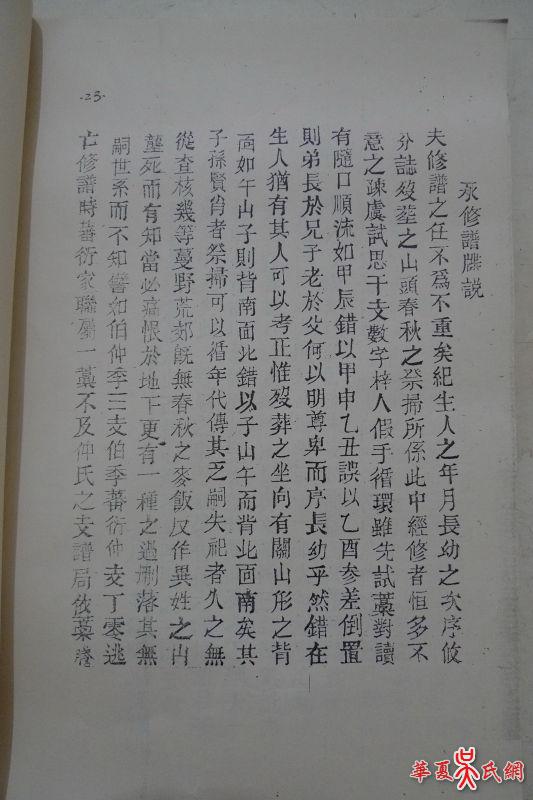 永修譜牒說
夫修譜之任不爲不重矣紀生人之年月長幼之次序攸
分誌歿塟之山頭春秋之祭掃所係此中經修者恒多不
意之疎虞試思干支數字梓人假手循環雖先試藁對讀
有隨口順流如甲辰錯以甲申乙丑誤以乙酉參差倒置
則弟長於兄子老於父何以明尊卑而序長幼乎然錯在
生人猶有其人可以考正惟歿葬之坐向有關山形之背
面如午山子則背南面北錯以子山午而背北面南矣其
子孫賢肖者祭掃可以循年代傳其乏嗣失祀者久之無
從查核幾等蔓野荒郊旣無春秋之麥飯反作異姓之山
塟死而有知當必痛恨於地下更有一種之過刪落其無
嗣世系而不知譬如伯仲季三支伯季蕃衍仲支丁零逃
亡修譜時蕃衍家聯屬一藁不及仲氏之支譜局依藁謄
·23·
華夏吳氏網